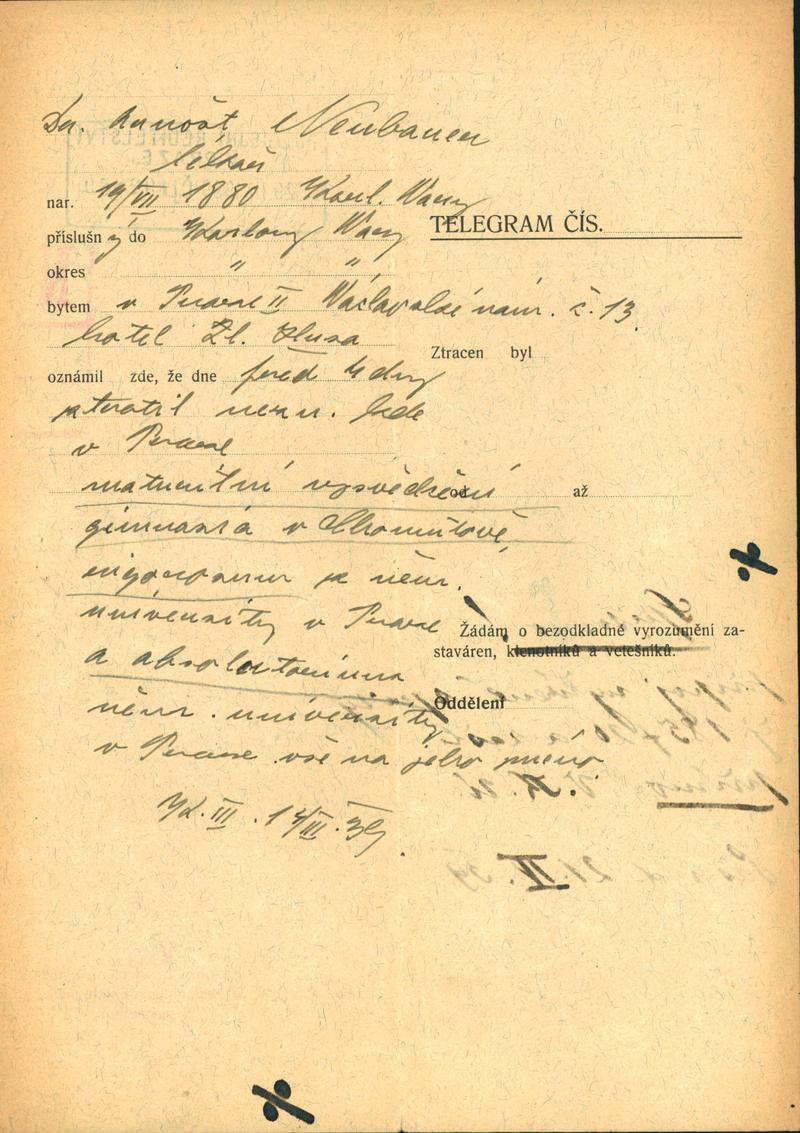 Dr. Arnošt Neubauer
lékař
nar. 19/VII 1880 Karl. Vary
TELEGRAM ČÍS.
příslušný do Karlovy Vary
okres " "
bytem v Praze II Václavské nám. č. 13.
hotel Zl. Husa
Ztracen byl
oznámil zde, že dne před 4 dny
ztratil nezn. kde
v Praze
maturitní vysvědčení
od až
gimnasia v Chomutově,
z něm.
university v Praze
Žádám o bezodkladné vyrozumění za-
staváren, klenotníků a vetešníků.
a absolutorium
Oddělení
něm. university
v Praze vše na jeho jméno.
III. 14/III. 39.